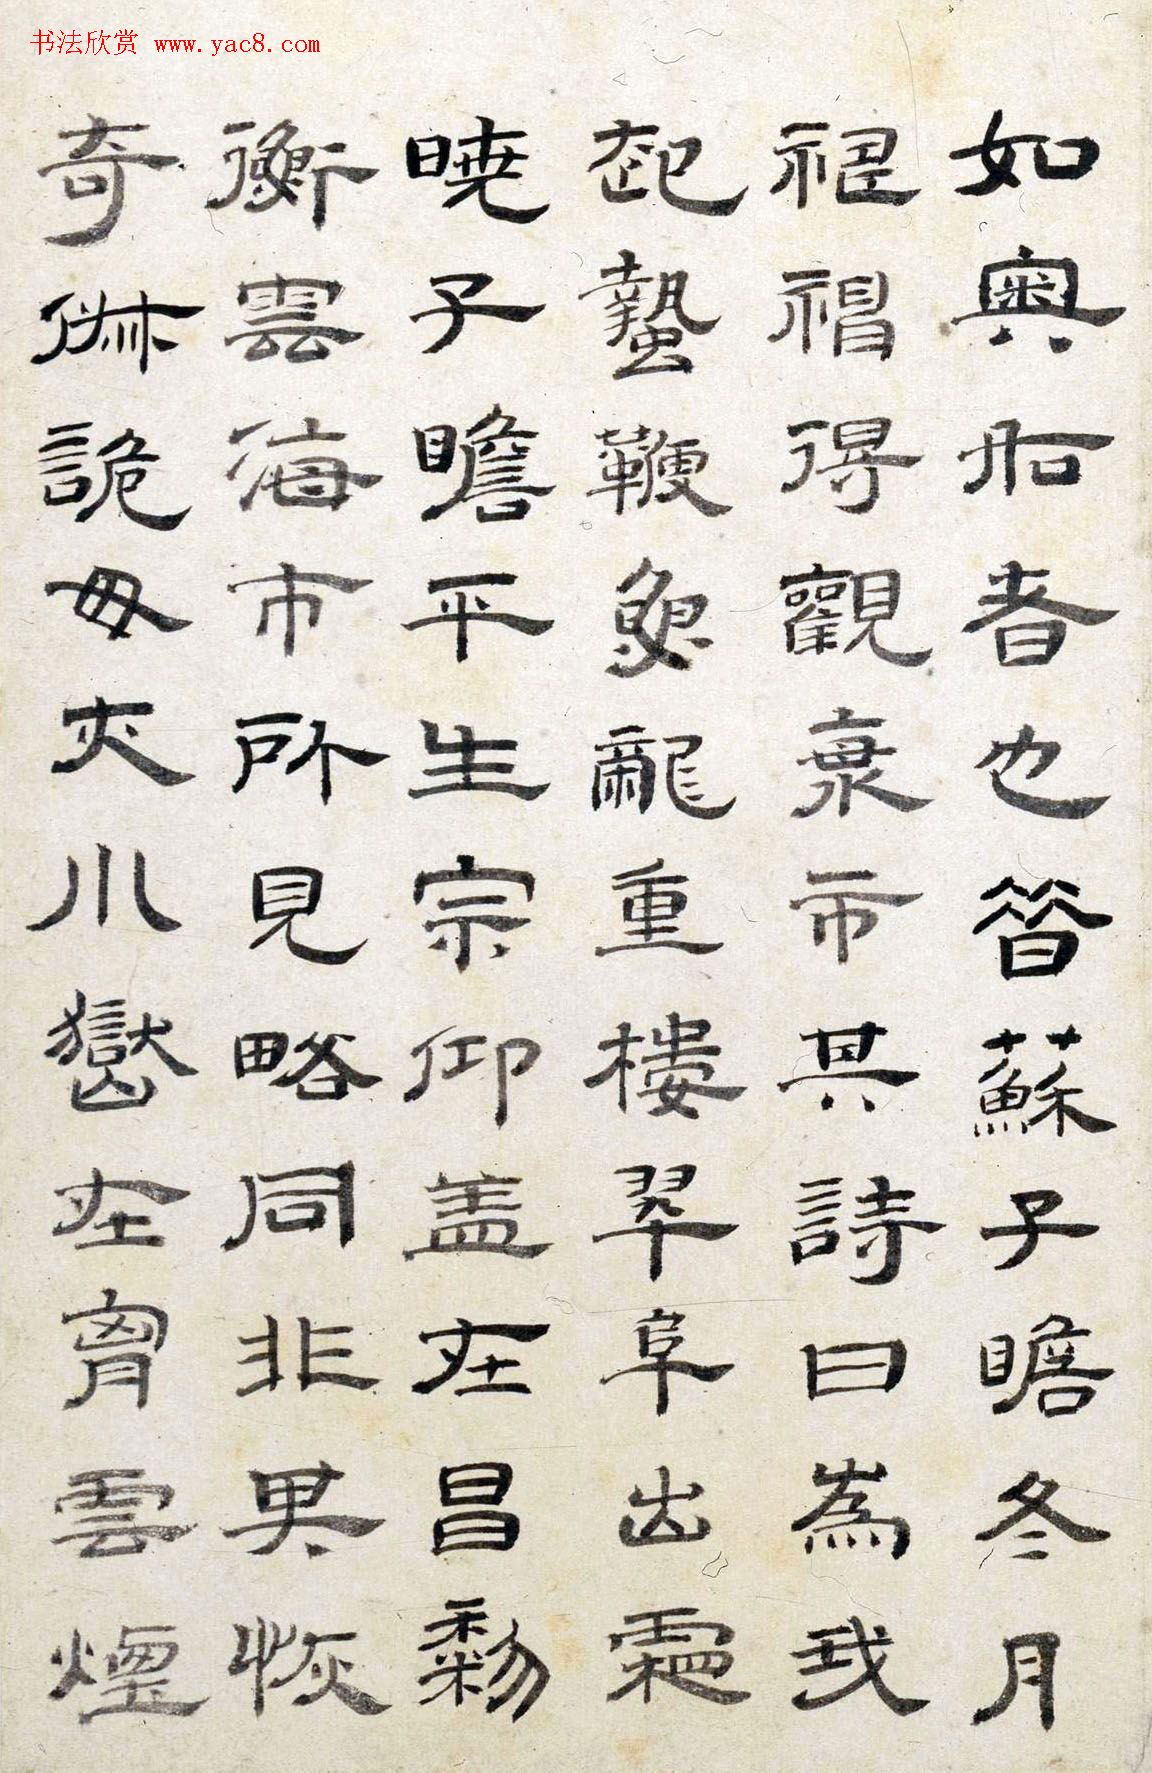 书法欣赏 www.yac8.com
如奥者也昔蘇子瞻冬月
得觀市其詩曰為我
起蟄鞭魚龍重樓翠阜出霜
曉子瞻平生宗仰盖在昌黎
衡雲海市所見略同非異恢
奇俶詭毋川嶽在胷雲煙